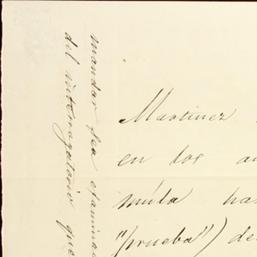 mandar sea examinad
del interrogatorio que
Martinez
en los au
múla ha
"prueba") de